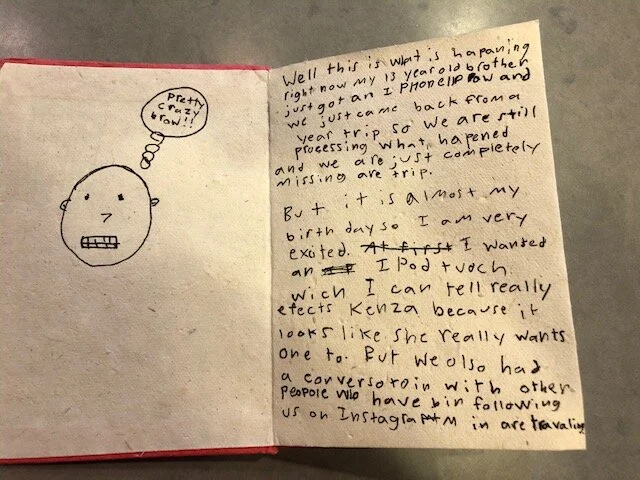 Pretty
crazy
brow!!
Well this is what is hapaning
right now my 13 year old brother
just got an I PHone
we just came back from a
year trip so we are still
processing what hapened
and we are just completely
missing are trip.
But it is almost my
birth day so I am very
excited. At first I wanted
an I Pod tuoch
wich I can tell really
efects Kenza because it
looks like she really wants
one to. But we also had
a conversotoin with other
peopole who have bin following
us on Instagram in are travaling